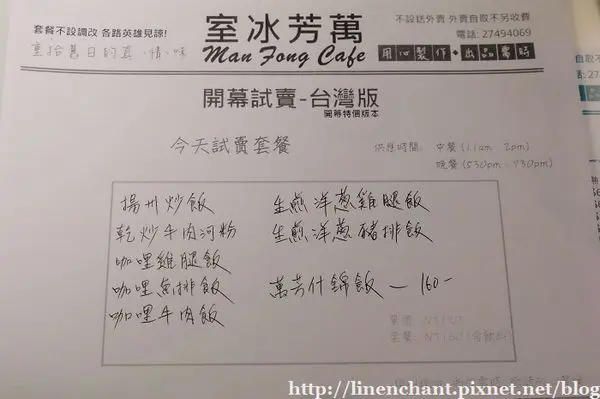 套餐不設調改 各路英雄見諒!
重拾舊日的真、情、味
室冰芳萬
Man Fong Cafe
不設送外賣 外賣自取不另收費
電話: 27494069
用心製作·出品需時
開幕試賣-台灣版
開幕特價版本
今天試賣套餐
供應時間: 中餐(11am - 2pm)
晚餐(530pm - 730pm)
揚州炒飯
生煎洋蔥雞腿飯
乾炒牛肉河粉
生煎洋蔥豬排飯
咖哩雞腿飯
咖哩魚排飯
萬芳什錦飯 — 160-
咖哩牛肉飯
http://linenchant.pixnet.net/blog